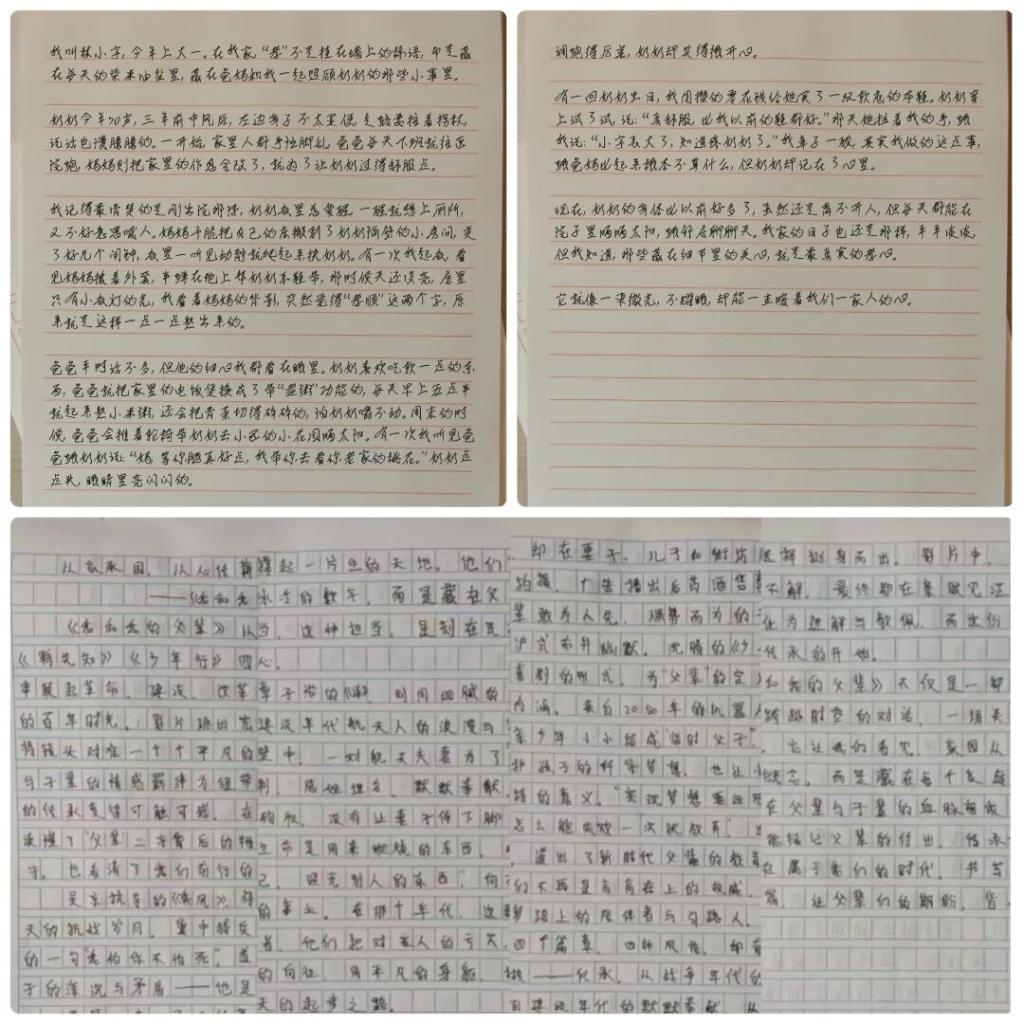 我叫林小宇,今年上大一。在我家“孝”不是挂在墙上的标语,而是藏
在每天的柴米油盐里,藏在爸妈和我一起照顾奶奶的那些小事里。
奶奶今年70岁,三年前中风后,左边身子不太灵便,走路要拄着拐杖,
说话也慢腾腾的。一开始,家里人都手忙脚乱,爸爸每天下班就往医
院跑,妈妈则把家里的作息全改了,就为了让奶奶过得舒服点。
我记得最清楚的是刚出院那阵,奶奶夜里总爱醒,一醒就想上厕所,
又不好意思喊人。妈妈干脆把自己的床搬到了奶奶隔壁的小房间,定
了好几个闹钟,夜里一听见动静就爬起来扶奶奶。有一次我起夜,看
见妈妈披着外套,半蹲在地上帮奶奶系鞋带,那时候天还没亮,屋里
只有小夜灯的光,我看着妈妈的背影,突然觉得“孝顺”这两个字,原
来就是这样一点一点熬出来的。
爸爸平时话不多,但他的细心我都看在眼里。奶奶喜欢吃软一点的东
西,爸爸就把家里的电饭煲换成了带“煮粥”功能的,每天早上五点半
就起来熬小米粥,还会把青菜切得碎碎的,怕奶奶嚼不动。周末的时
候,爸爸会推着轮椅带奶奶去小区的小花园晒太阳。有一次我听见爸
爸跟奶奶说:“妈,等你腿再好点,我带你去看你老家的桃花。”奶奶点
点头,眼睛里亮闪闪的。
调跑得厉害,奶奶却笑得很开心。
有一回奶奶生日,我用攒的零花钱给她买了一双软底的布鞋。奶奶穿
上试了试,说:“真舒服,比我以前的鞋都好。”那天她拉着我的手,跟
我说:“小宇长大了,知道疼奶奶了。”我鼻子一酸,其实我做的这点事,
跟爸妈比起来根本不算什么,但奶奶却记在了心里。
现在,奶奶的身体比以前好多了,虽然还是离不开人,但每天都能在
院子里晒晒太阳,跟邻居聊聊天。我家的日子也还是那样,平平淡淡,
但我知道,那些藏在细节里的关心,就是最真实的孝心。
它就像一束微光,不耀眼,却能一直暖着我们一家人的心。
从家承国,从心传
——《我和我
《我和我的父辈》以
《鸭先知》《少年行》四
串联起革命、建设、改革
的百年时光。影片跳出宏
将镜头对准一个个平凡的
与子辈的情感羁绊为纽带
的传承变得可触可感。在
读懂了“父辈”二字背后的
守,也看清了我们前行的
吴京执导的《乘风》,将
天的抗战岁月。
的一句“我怕你不怕死”,道
子的深沉与矛盾——他是
撑起一片总的天地。他们
永泛的数字,而是藏在父
当,这种担当,是刻在民
心。
章子怡的《诗》,则用细腻的
建设年代航天人的浪漫与
中,一对航天夫妻为了
隐姓埋名、默默奉献
没有让妻子停下脚
生命是用来燃烧的东西,
己,照亮别人的东西”,向
的事业。在那个年代,这
者,他们把对家人的亏欠,
的向往,用平凡的身躯,
天的起步之路。
却在妻子、儿子和街坊
的援,广告播出后药酒售
辈敢为人先、顺势而为的
沪式市井幽默。沈腾的《少
喜剧的形式,为“父辈”的定
内涵。来自2050年的机器人
年少年小小结成“临时父子”
护孩子的科学梦想,也让
特的意义。“实现梦想
怎么能失败一次就放弃”
道出了新时代父辈的教育
们不再是高高在上的权威,
梦路上的陪伴者与引路人。
四个篇章,四种风格,却有
——传承。从战争年代的
建设年代的默默奉献,从
挺身而出。影片中,
不解,最终都在亲眼见证
化为理解与敬佩,而这份
传承的开始。
和我的父辈》不仅是一部
跨越时空的对话,一场关
它让我们看见,家国从
概念,而是藏在每个家庭
在父辈与子辈的血脉相依
能铭记父辈的付出,传承
在属于我们的时代,书写
篇,让父辈们的期盼,皆